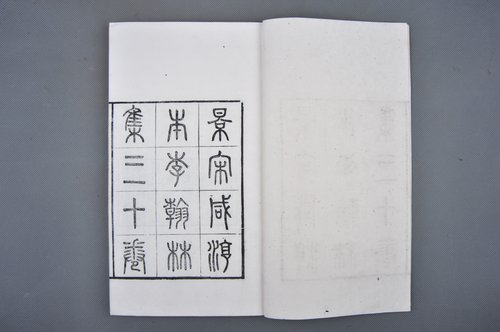 景宋咸淳
本李翰林
集三十卷